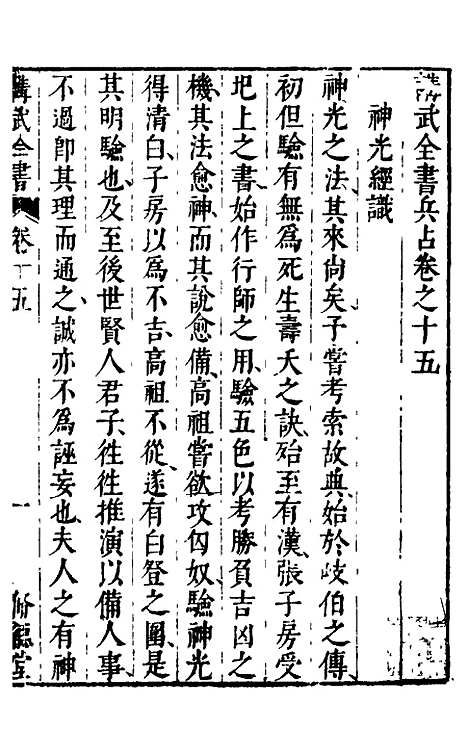 講武全書兵占卷之十五
神光經識
神光之法其來尙矣子嘗考索故典始於岐伯之傳
初但驗有無爲死生壽夭之訣殆至有漢張子房受
圯上之書始作行師之用驗五色以考勝負吉凶之
機其法愈神而其說愈備高祖嘗欲攻匈奴驗神光
得清白子房以爲不吉高祖不從遂有白登之圍是
其明驗也及至後世賢人君子徃徃推演以備人事
不過卽其理而通之誠亦不爲誣妄也夫人之有神
講武全書 卷十五 一